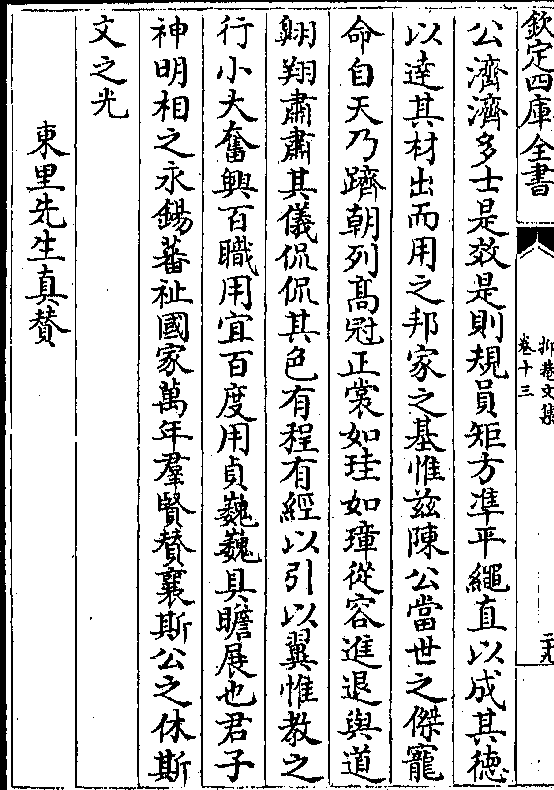 欽定四庫全書
抑菴文集
卷十三
公濟濟多士是效是則規員矩方凖平繩直以成其徳
以達其材出而用之邦家之基惟兹陳公當世之傑寵
命自天乃躋朝列髙冠正裳如珪如璋從容進退與道
翺翔肅肅其儀侃侃其色有程有經以引以翼惟教之
行小大奮興百職用宜百度用貞巍巍具瞻展也君子
神明相之永錫蕃祉國家萬年羣賢賛襄斯公之休斯
文之光
東里先生真賛